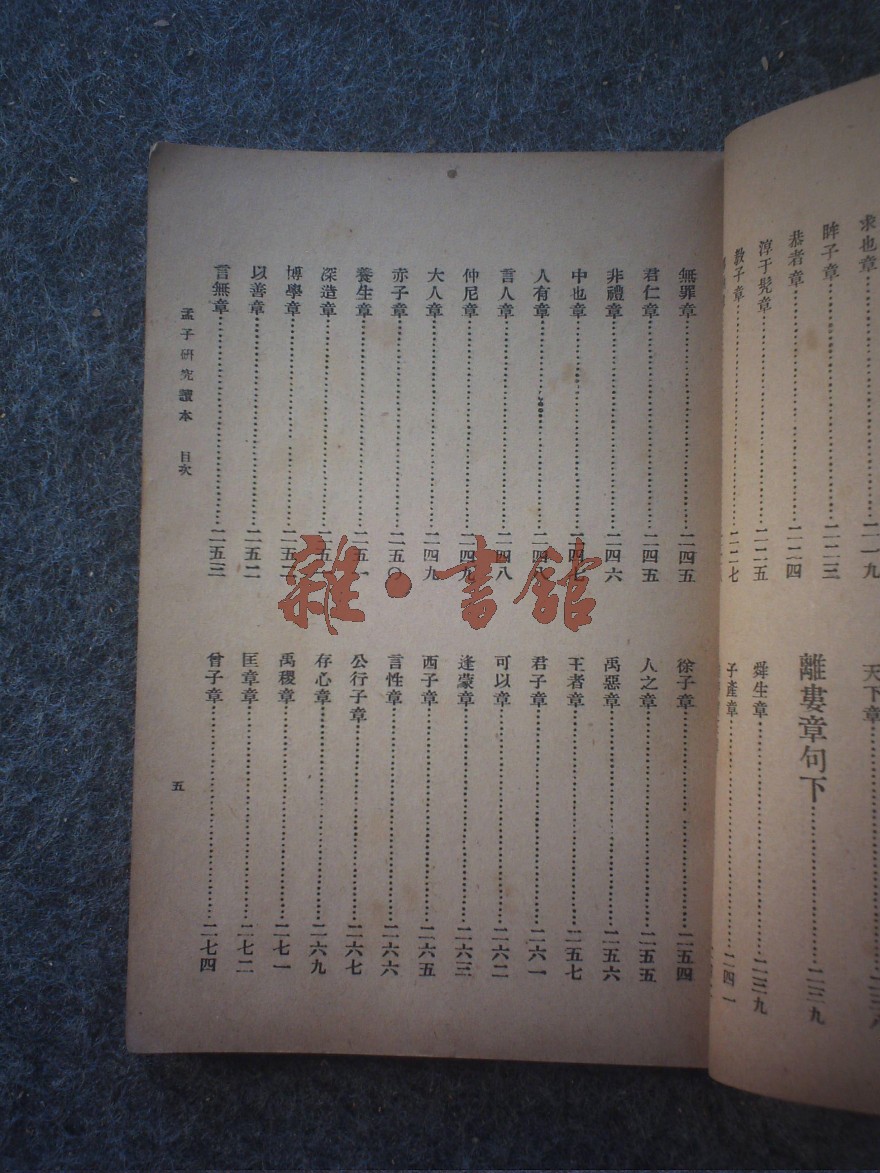 求也章……二一九
眸子章……二二三
恭者章……二二四
淳于髡章……二二五
教子章……二二七
天下章……
離婁章句下……二三九
舜生章……二三九
子產章……二四一
無罪章……二四五
君仁章……二四五
非禮章……二四六
中也章……二四七
人有章……二四八
言人章……二四八
仲尼章……二四九
大人章……二四九
赤子章……二五〇
養生章……二五一
深造章……二五一
博學章……二五二
以善章……二五二
言無章……二五三
徐子章……二五四
人之章……二五五
禹惡章……二五六
王者章……二五七
君子章……二六一
可以章……二六二
逢蒙章……二六三
西子章……二六五
言性章……二六六
公行子章……二六七
存心章……二六九
禹稷章……二七一
匡章章……二七二
曾子章……二七四
孟子研究讀本 目次
五
雜·書館